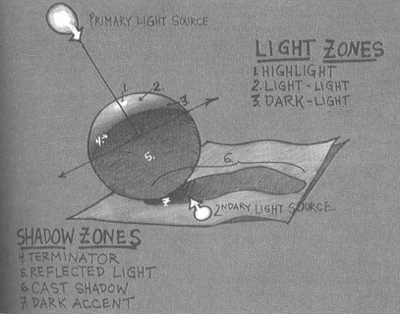 PRIMARY LIGHT SOURCE
LIGHT ZONES
1. HIGHLIGHT
2. LIGHT-LIGHT
3. DARK-LIGHT
1.
2.
3.
4.
5.
6.
7
2NDARY LIGHT SOURCE
SHADOW ZONES
4. TERMINATOR
5. REFLECTED LIGHT
6 CAST SHADOW
7. DARK ACCENT